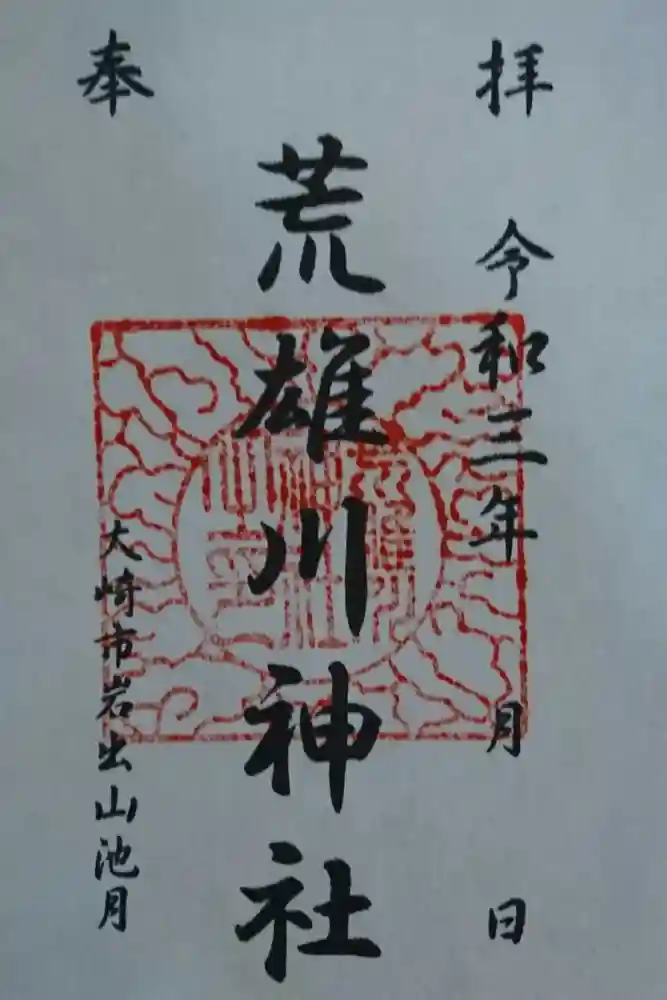 奉
拝
令和三年 月 日
荒雄川神社
大崎市岩出山池月